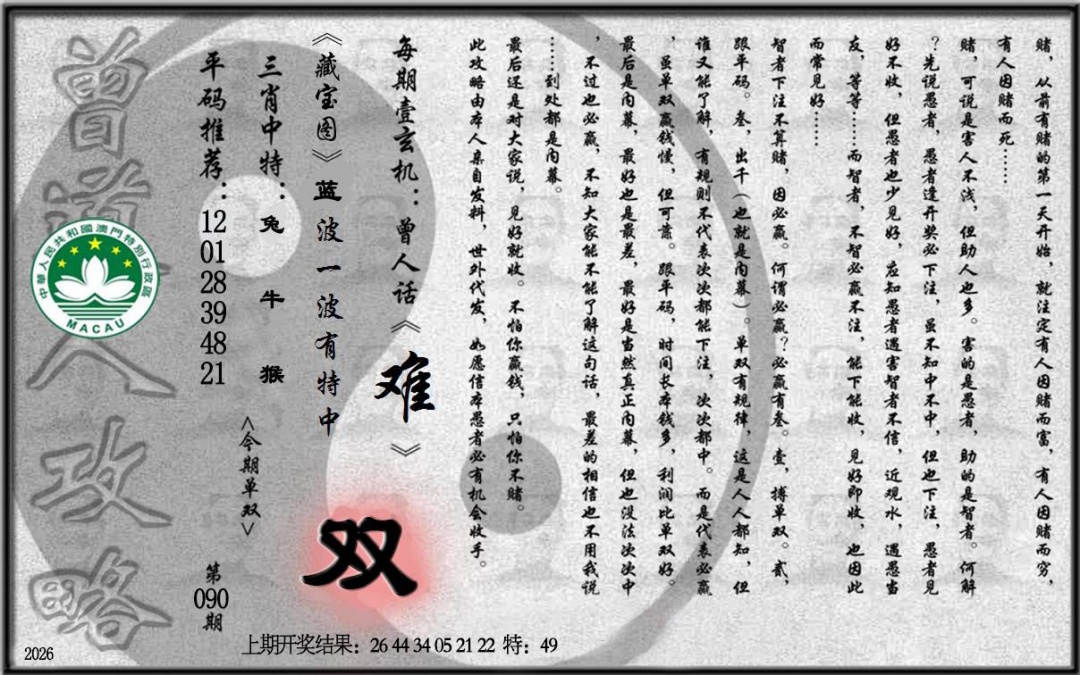 赌，从前有赌的第一天开始，就注定有人因赌而富，有人因赌而穷，
有人因赌而死……
赌，可说是害人不浅，但助人也多。害的是愚者，助的是智者。何解
？先说愚者，愚者逢开奖必下注，虽不知中不中，但也下注，愚者见
好不收，但愚者也少见好，应知愚者遇害智者不信，近观水，遇愚当
友，等等……而智者，不智必赢不注，能下能收，见好即收，也因此
而常见好……
智者下注不算赌，因必赢。何谓必赢？必赢有叁。壹，搏单双。贰，
跟平码。叁，出千（也就是内幕）。单双有规律，这是人人都知，但
谁又能了解，有规则不代表次次都能下注，次次都中。而是代表必赢
，虽单双赢钱慢，但可靠。跟平码，时间长本钱多，利润比单双好。
最后是内幕，最好也是最差，最好是当然真正内幕，但也没法次次中
，不过也必赢，不知大家能不能了解这句话，最差的相信也不用我说
……到处都是内幕。
最后还是对大家说，见好就收。不怕你赢钱，只怕你不赌。
此攻略由本人亲自发料，世外代发，如愿信本愚者必有机会收手。
每期壹玄机：曾人话《难》
《藏宝图》蓝波一波有特中
双
三肖中特：兔 牛 猴
<今期单双>
平码推荐：12 01 28 39 48 21
第090期
曾道人攻略
中華人民共和國澳門特別行政區
MACAU
上期开奖结果：26 44 34 05 21 22 特：49
2026